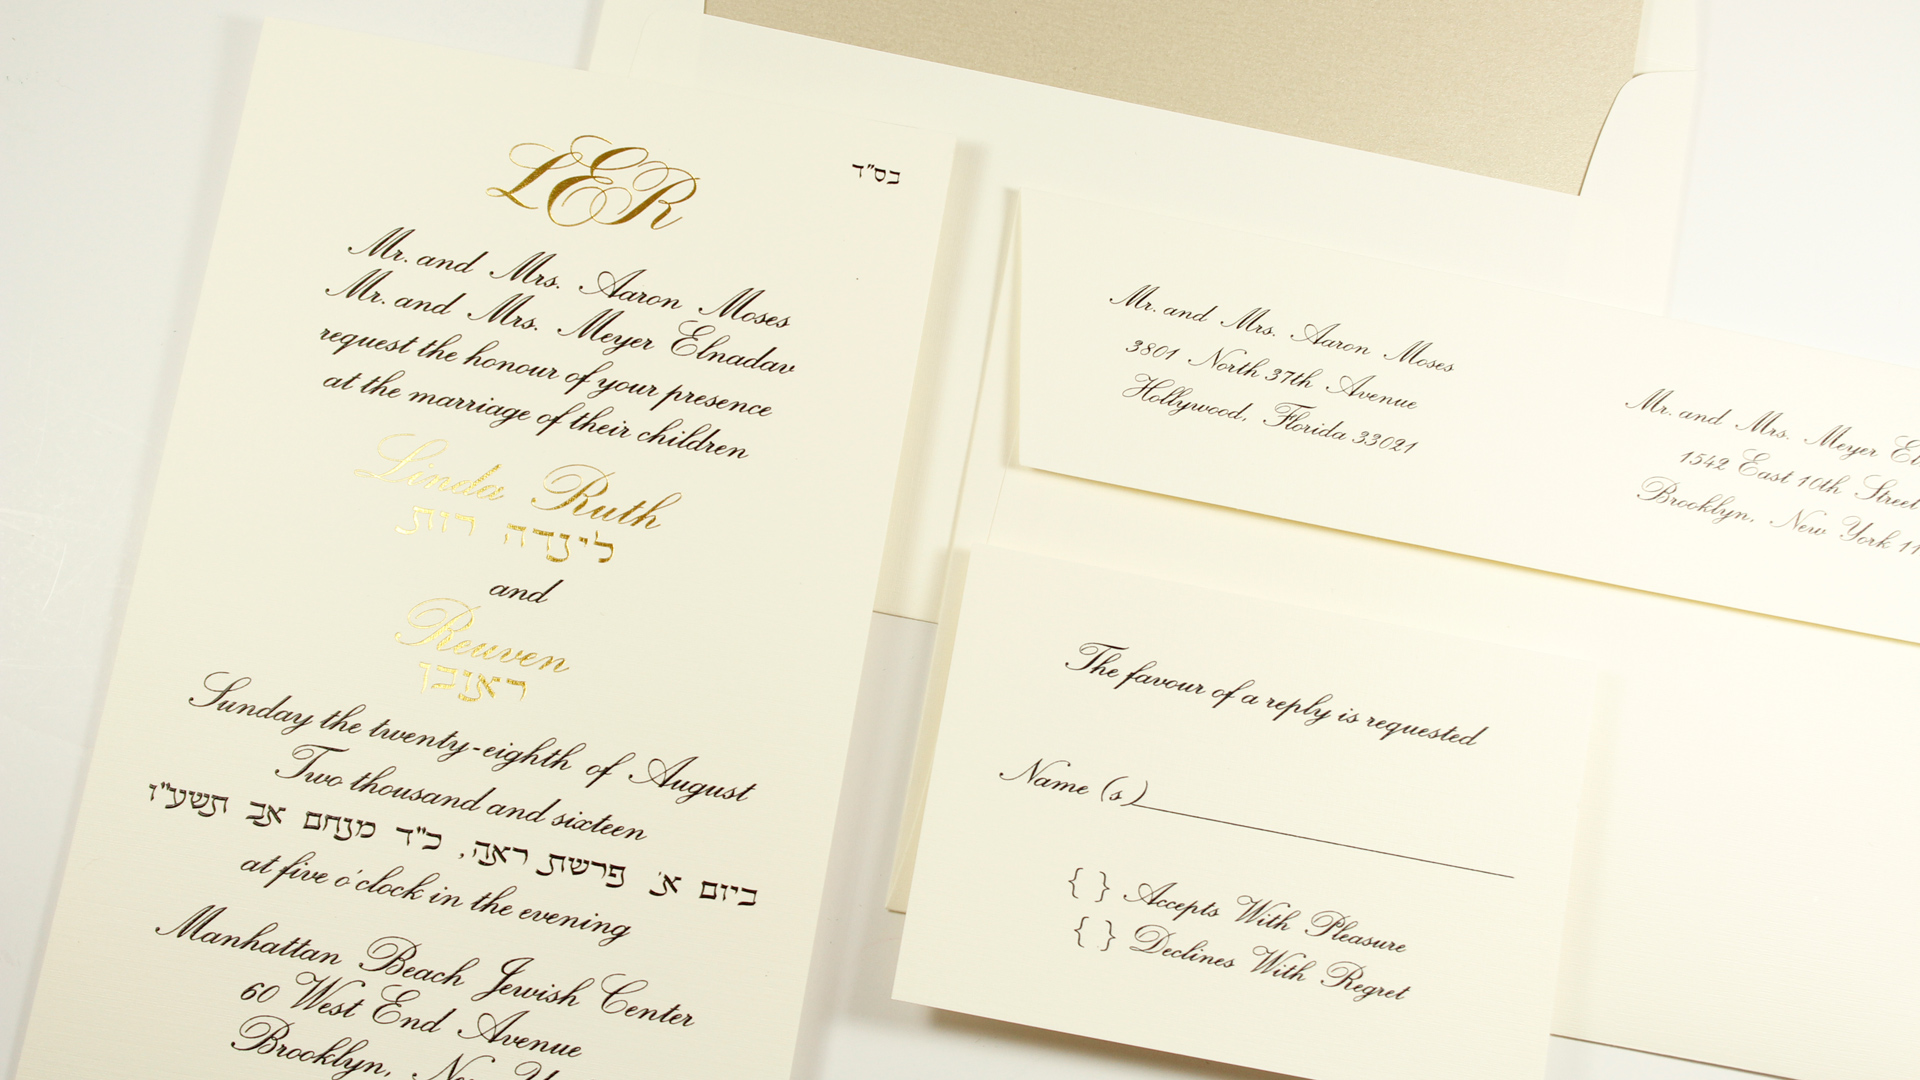 בס"ד
LER
Mr. and Mrs. Aaron Moses
Mr. and Mrs. Meyer Elnadav
request the honour of your presence
at the marriage of their children
Linda Ruth
לינדה רות
and
Reuven
ראובן
Sunday the twenty-eighth of August
Two thousand and sixteen
ביום א' פרשת ראה, כ"ד מנחם אב תשע"ו
at five o'clock in the evening
Manhattan Beach Jewish Center
60 West End Avenue
Brooklyn,
Mr. and Mrs. Aaron Moses
3801 North 37th Avenue
Hollywood, Florida 33021
Mr. and Mrs. Meyer
1542 East 10th Street
Brooklyn, New York
The favour of a reply is requested
Name (s)
{ } Accepts With Pleasure
{ } Declines With Regret